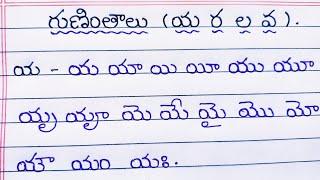 గుణింతాలు (య ర ల వ).
య - య యా యి యీ యు యూ
యృ యౄ యె యే యై యొ యో
యౌ యం యః.